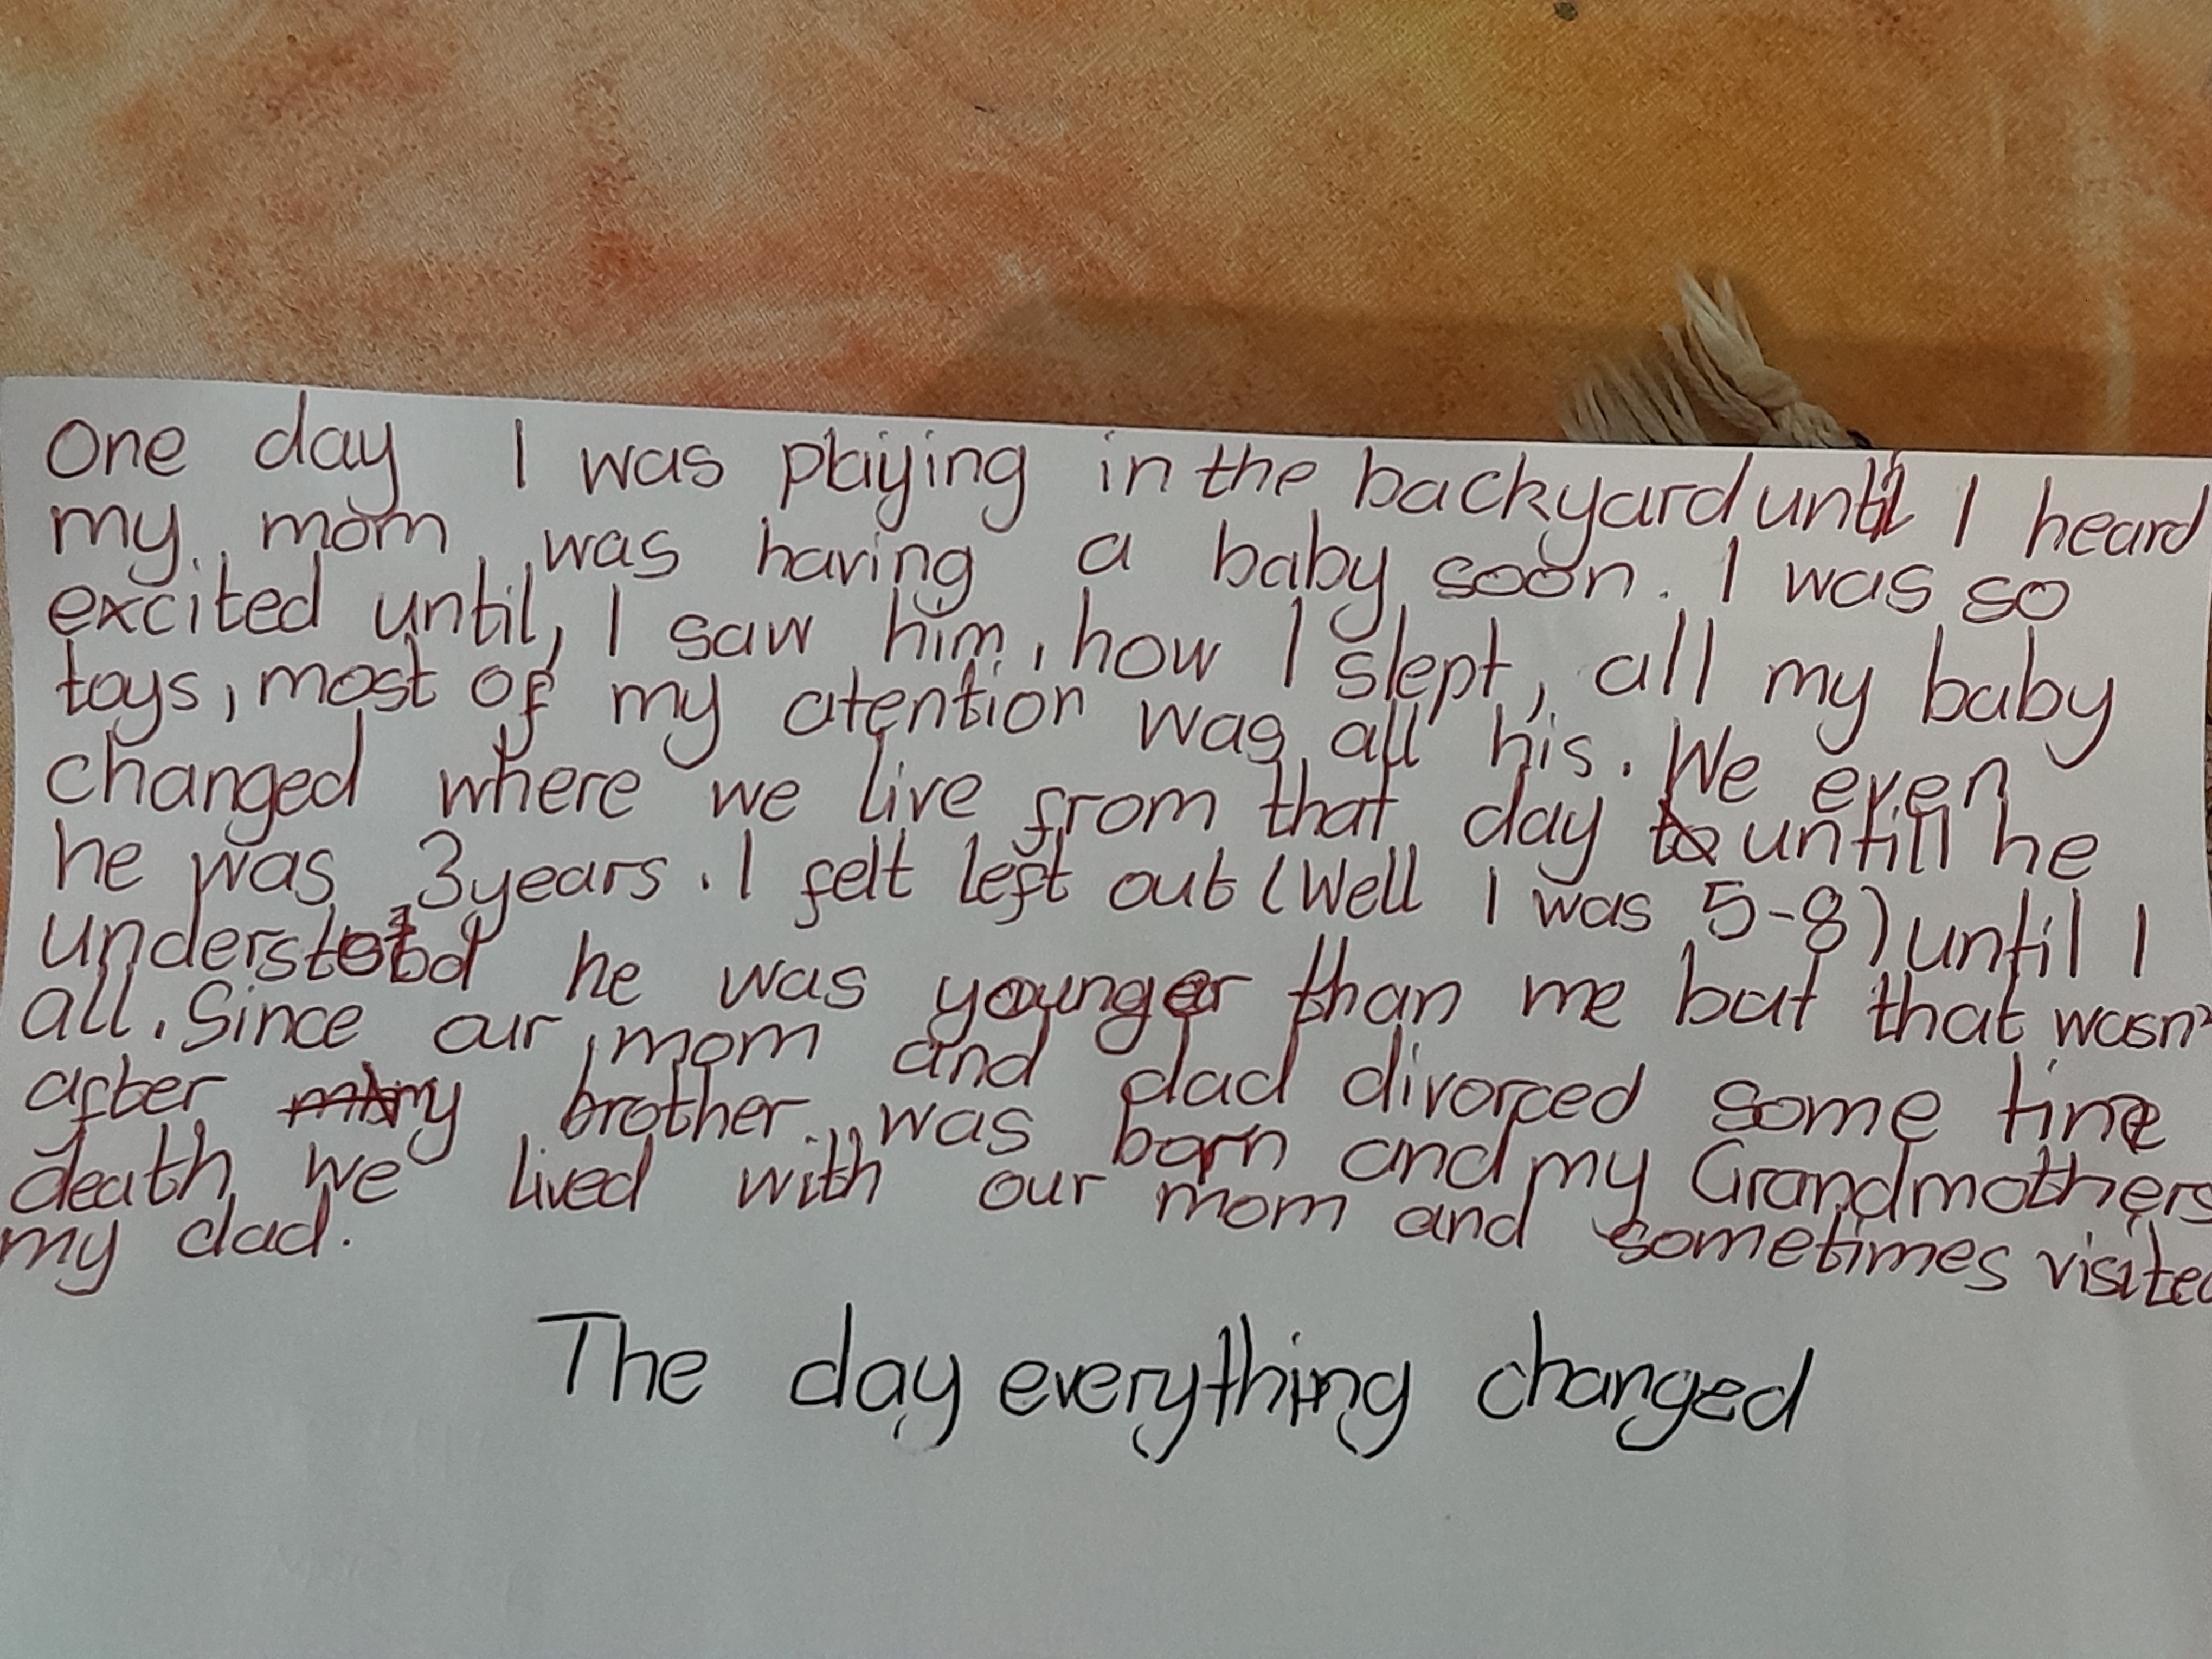 One day I was playing in the backyard until I heard
my mom was having a baby soon. I was so
excited until, I saw him, how I slept, all my baby
toys, most of my atention was all his. We even
changed where we live from that day to untill he
he was 3 years. I felt left out (Well I was 5-8) until I
understood he was younger than me but that wasn'
all. Since our mom and dad divorced some time
after my brother was born and my Grandmothers
death we lived with our mom and sometimes visited
my dad.
The day everything changed